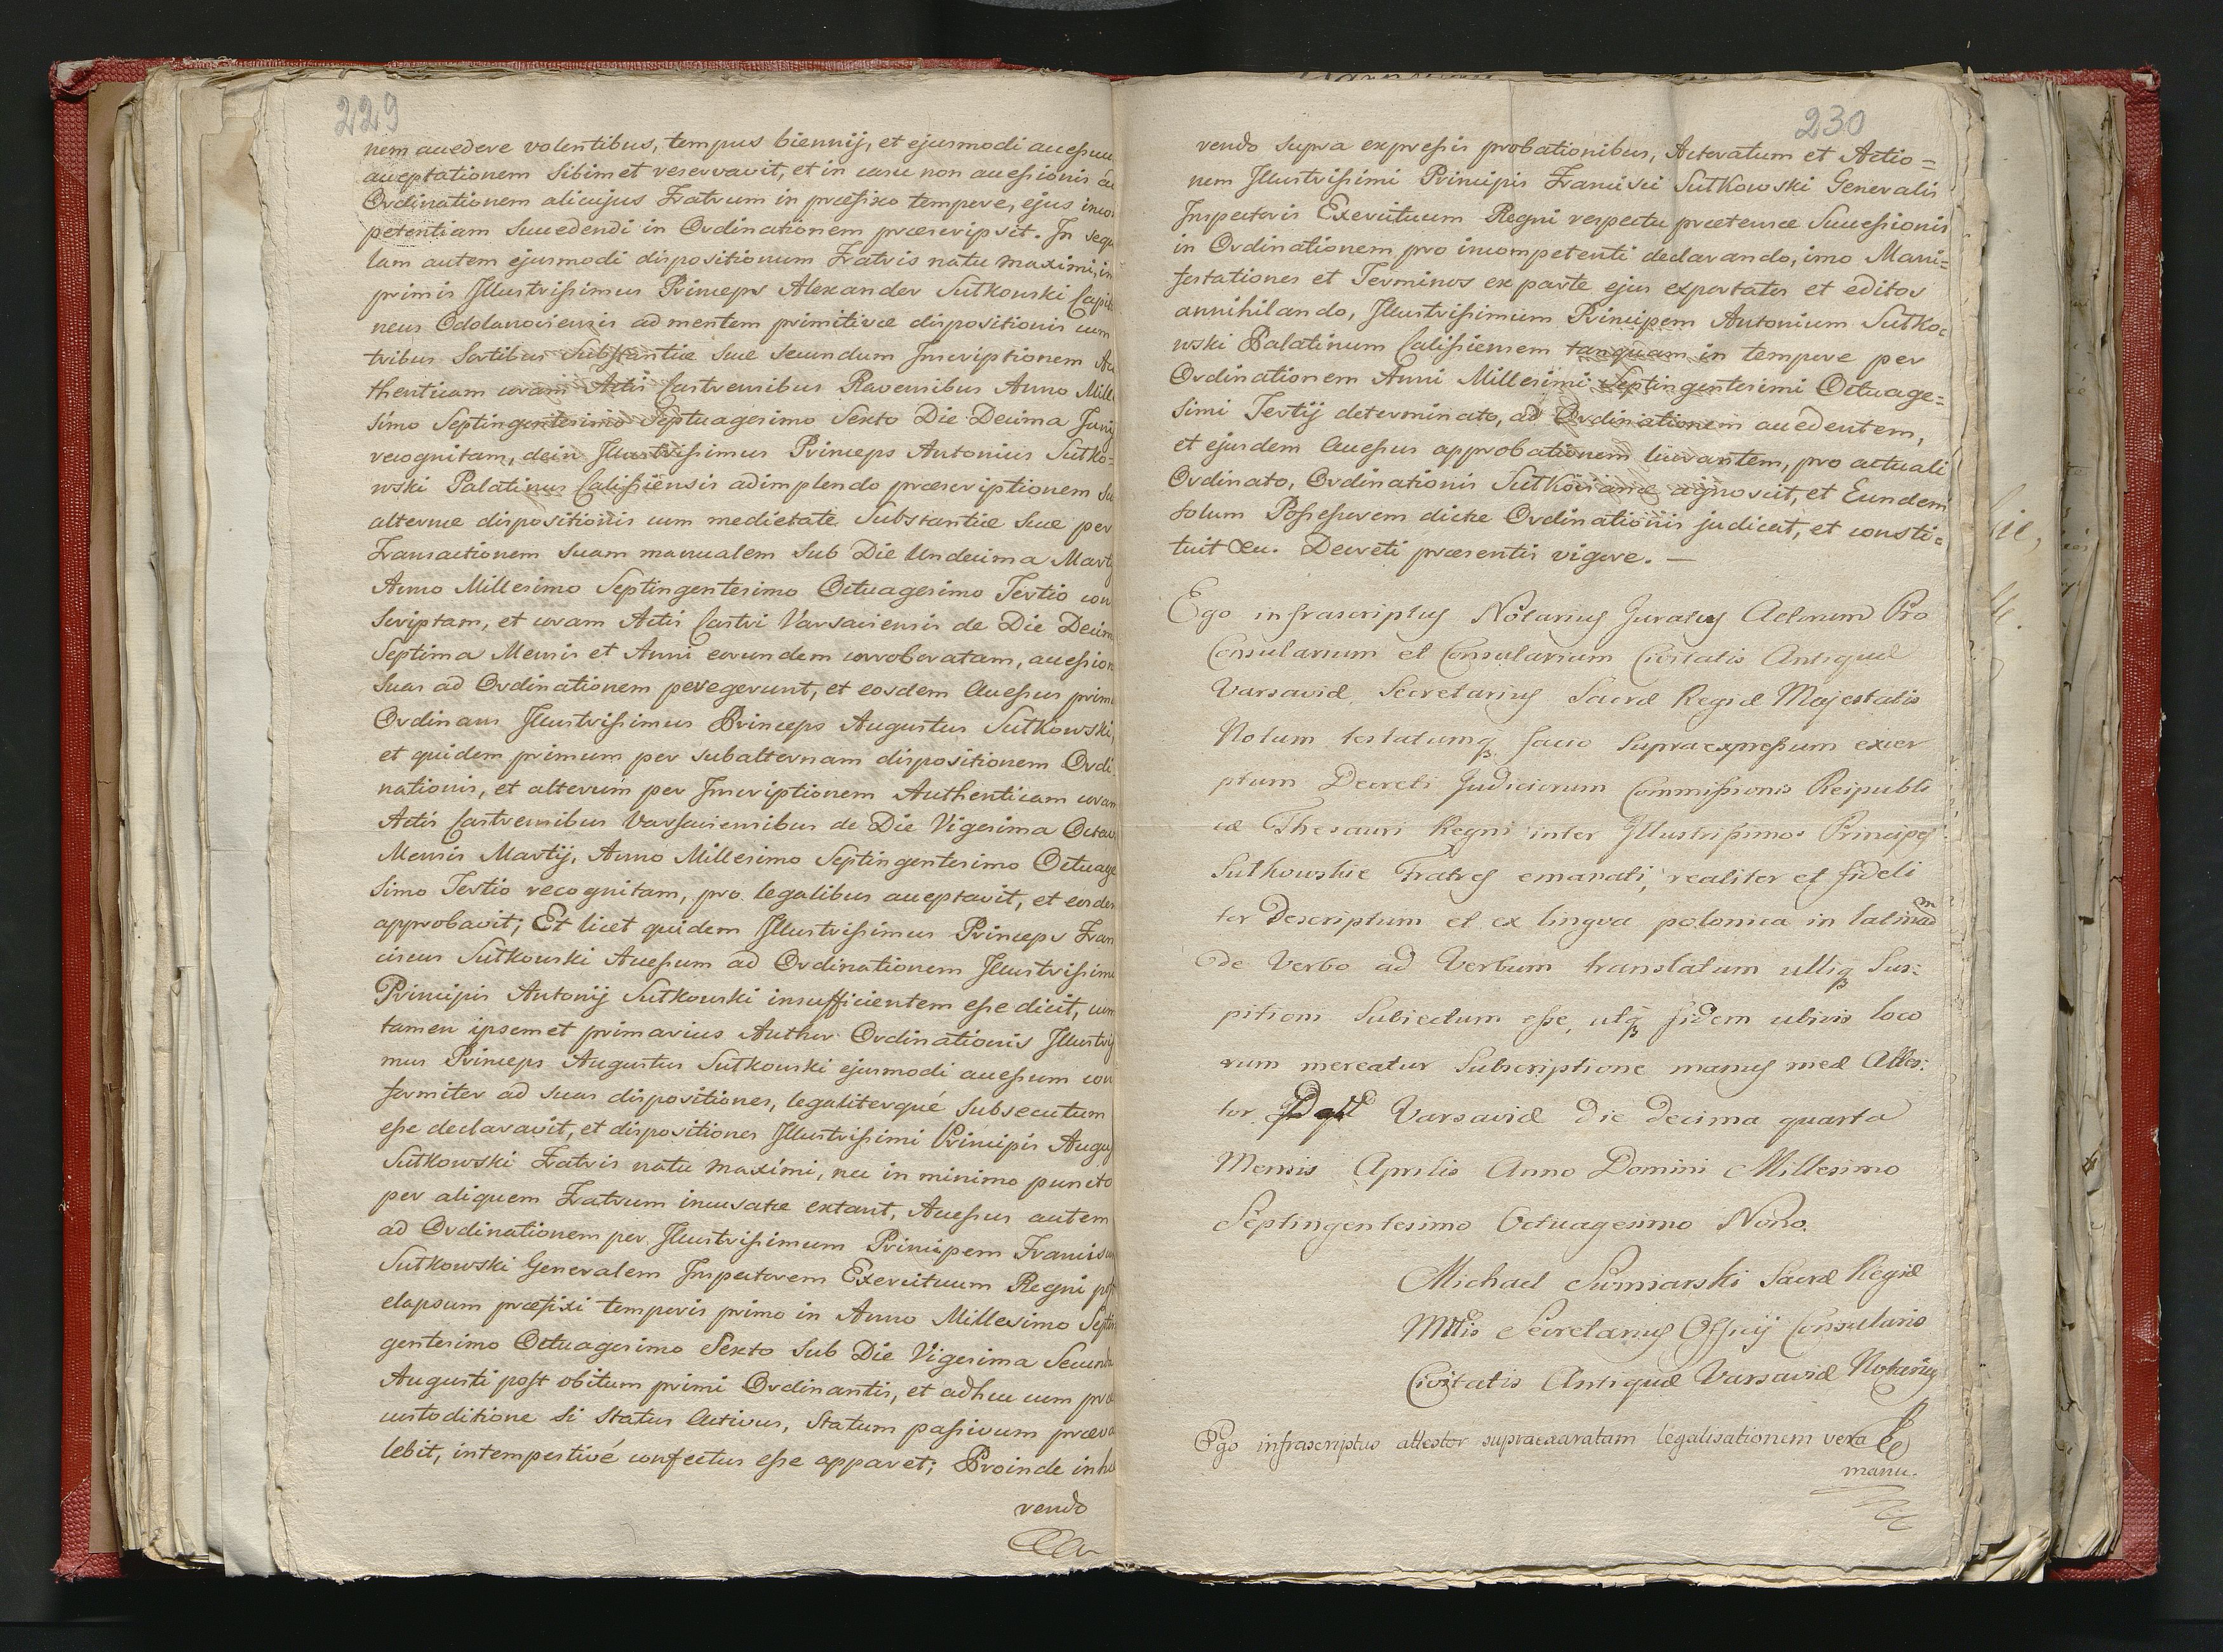 229
nem accedere volentibus, tempus biennij, et ejusmodi accessuu
acceptationem sibimet reservavit, et in casu non accessionis ad
Ordinationem alicujus Fratrum in præfixo tempore, ejus incom
petentiam succedendi in Ordinationem præscripsit. In sequ
lam autem ejusmodi dispositionum Fratris natu maximi, in
primis Illustrissimus Princeps Alexander Sutkowski Capit
neus Odolanoviensis ad mentem primitivæ dispositionis cum
tribus Sortibus Substantiæ suæ secundum Inscriptionem Au
thenticam coram Actis Castrensibus Ravensibus Anno Mille
simo Septingentesimo Septuagesimo Sexto Die Decima Junij
recognitam, dein Illustrissimus Princeps Antonius Sutko=
wski Palatinus Calissiensis adimplendo præscriptionem su
alternæ dispositionis cum medietate Substantiæ suæ per
Transactionem suam manualem sub Die Undecima Martij
Anno Millesimo Septingentesimo Octuagesimo Tertio con
scriptam, et coram Actis Castri Varsaviensis de Die Decim
Septima Mensis et Anni eorundem corroboratam, accession
suas ad Ordinationem peregerunt, et eosdem Accessus prim
Ordinans Illustrissimus Princeps Augustus Sutkowski,
et quidem primum per subalternam dispositionem Ordi
nationis, et alterum per Inscriptionem Authenticam coram
Actis Castrensibus Varsaviensibus de Die Vigesima Octava
Mensis Martij, Anno Millesimo Septingentesimo Octuage
simo Tertio recognitam, pro legalibus acceptavit, et eosdem
approbavit; Et licet quidem Illustrissimus Princeps Fran
ciscus Sutkowski Accessum ad Ordinationem Illustrissimi
Principis Antonij Sutkowski insufficientem esse dicit, cum
tamen ipsemet primarius Author Ordinationis Illustrissi
mus Princeps Augustus Sutkowski ejusmodi accessum con
formiter ad suas dispositiones, legaliterqué subsecutum
esse declaravit, et dispositiones Illustrissimi Principis Augu
Sutkowski Fratris natu maximi, nec in minimo puncto
per aliquem Fratrum incusatæ extant, Accessus autem
ad Ordinationem per Illustrissimum Principem Franciscum
Sutkowski Generalem Inspectorem Exercituum Regni post
elapsum præfixi temporis primo in Anno Millesimo Septin
gentesimo Octuagesimo Sexto sub Die Vigesima Secunda
Augusti post obitum primi Ordinantis, et adhuc cum præ
custoditione si Status Activus, Statum passivum præva
lebit, intempestivé confectus esse apparet; Proinde inhæ
vendo
230
vendo supra expressis probationibus, Actoratum et Actio=
nem Illustrissimi Principis Francisci Sutkowski Generalis
Inspectoris Exercituum Regni respectu prætensæ Successionis
in Ordinationem pro incompetenti declarando, imo Mani=
festationes et Terminos ex parte ejus exportatos et editos
annihilando, Illustrissimum Principem Antonium Sutko=
wski Palatinum Calissiensem tanquam in tempore per
Ordinationem Anni Millesimi Septingentesimi Octuage=
simi Tertij determinato, ad Ordinationem accedentem,
et ejusdem Accessus approbationem lucrantem, pro actuali
Ordinato, Ordinationis Sutkovianæ agnoscit, et Eundem
solum Possessorem dictæ Ordinationis judicat, et consti=
tuit &c. Decreti præsentis vigore. —
Ego infrascriptus Notarius Juratus Actorum Pro
Consularium et Consularium Civitatis Antiquæ
Varsaviæ Secretarius Sacræ Regiæ Majestatis
Notum testatumq3 facio Supraexpressum excer
ptum Decreti Judiciorum Commissionis Reipubli
cæ Thesauri Regni inter Illustrissimos Principes
Sutkowskie Fratres emanati, realiter et fideli
ter Descriptum et ex lingva polonica in latinam
de Verbo ad Verbum translatum ulliq3 Sus:
pitioni Subiectum esse, utq3 fidem ubivis loco
rum mereatur Subscriptione manus meæ Attes:
tor Varsaviæ Die Decima quarta
Mensis Aprilis Anno Domini Millesimo
Septingentesimo Octuagesimo Nono
Michael Sumiarski Sacræ Regiæ
Mttis Secretarius Officij Consularis
Civitatis Antiquæ Varsaviæ Notarius
Ego infrascriptus attestor supraexaratam legalisationem vera
manu.